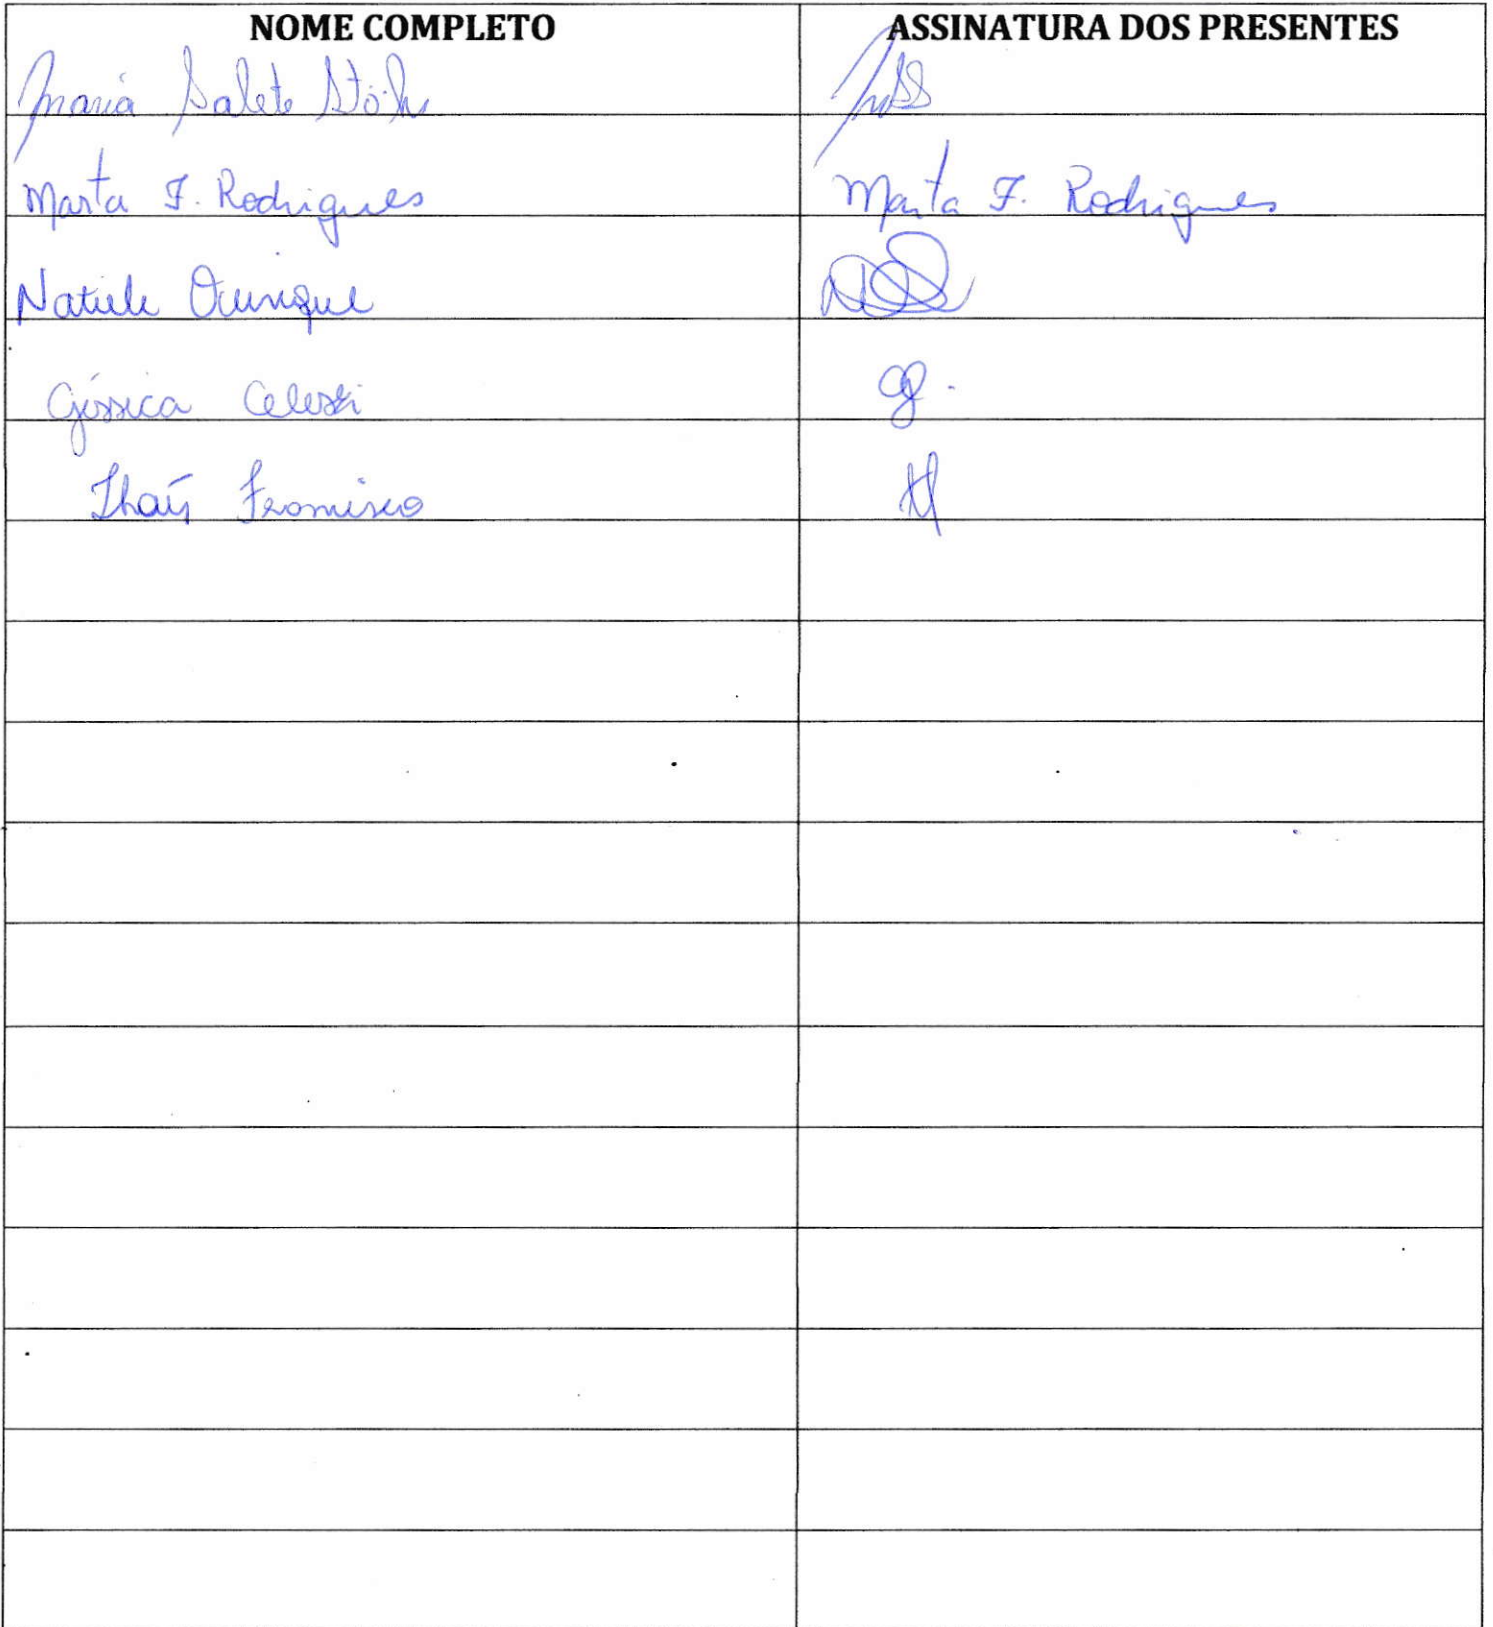 NOME COMPLETO ASSINATURA DOS PRESENTES
Maria Salete Stöhr
Marta F. Rodrigues Marta F. Rodrigues
Natiele
Géssica Celeski
Thaís Francisco